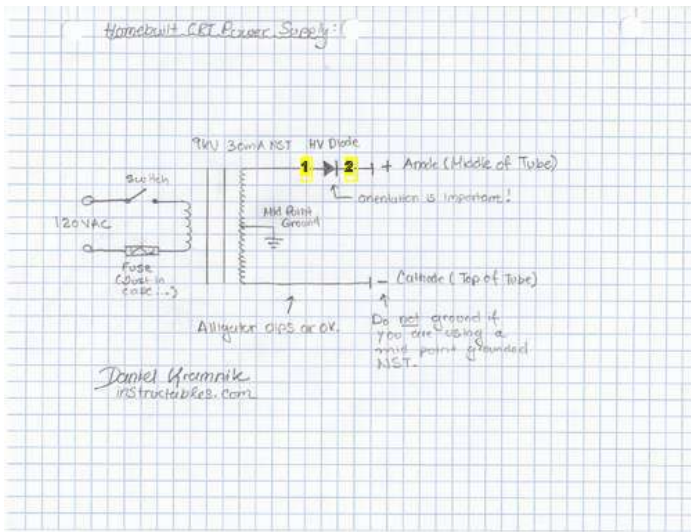 Homebuilt CRT Power Supply:
9kV 30mA NST
HV Diode
1
2
+ Anode (Middle of Tube)
Switch
orientation is important!
Mid Point
Ground
120VAC
Fuse
(Just in
case...)
- Cathode (Top of Tube)
Alligator clips are ok.
Do not ground if
you are using a
mid point grounded
NST.
Daniel Kramnik
instructables.com